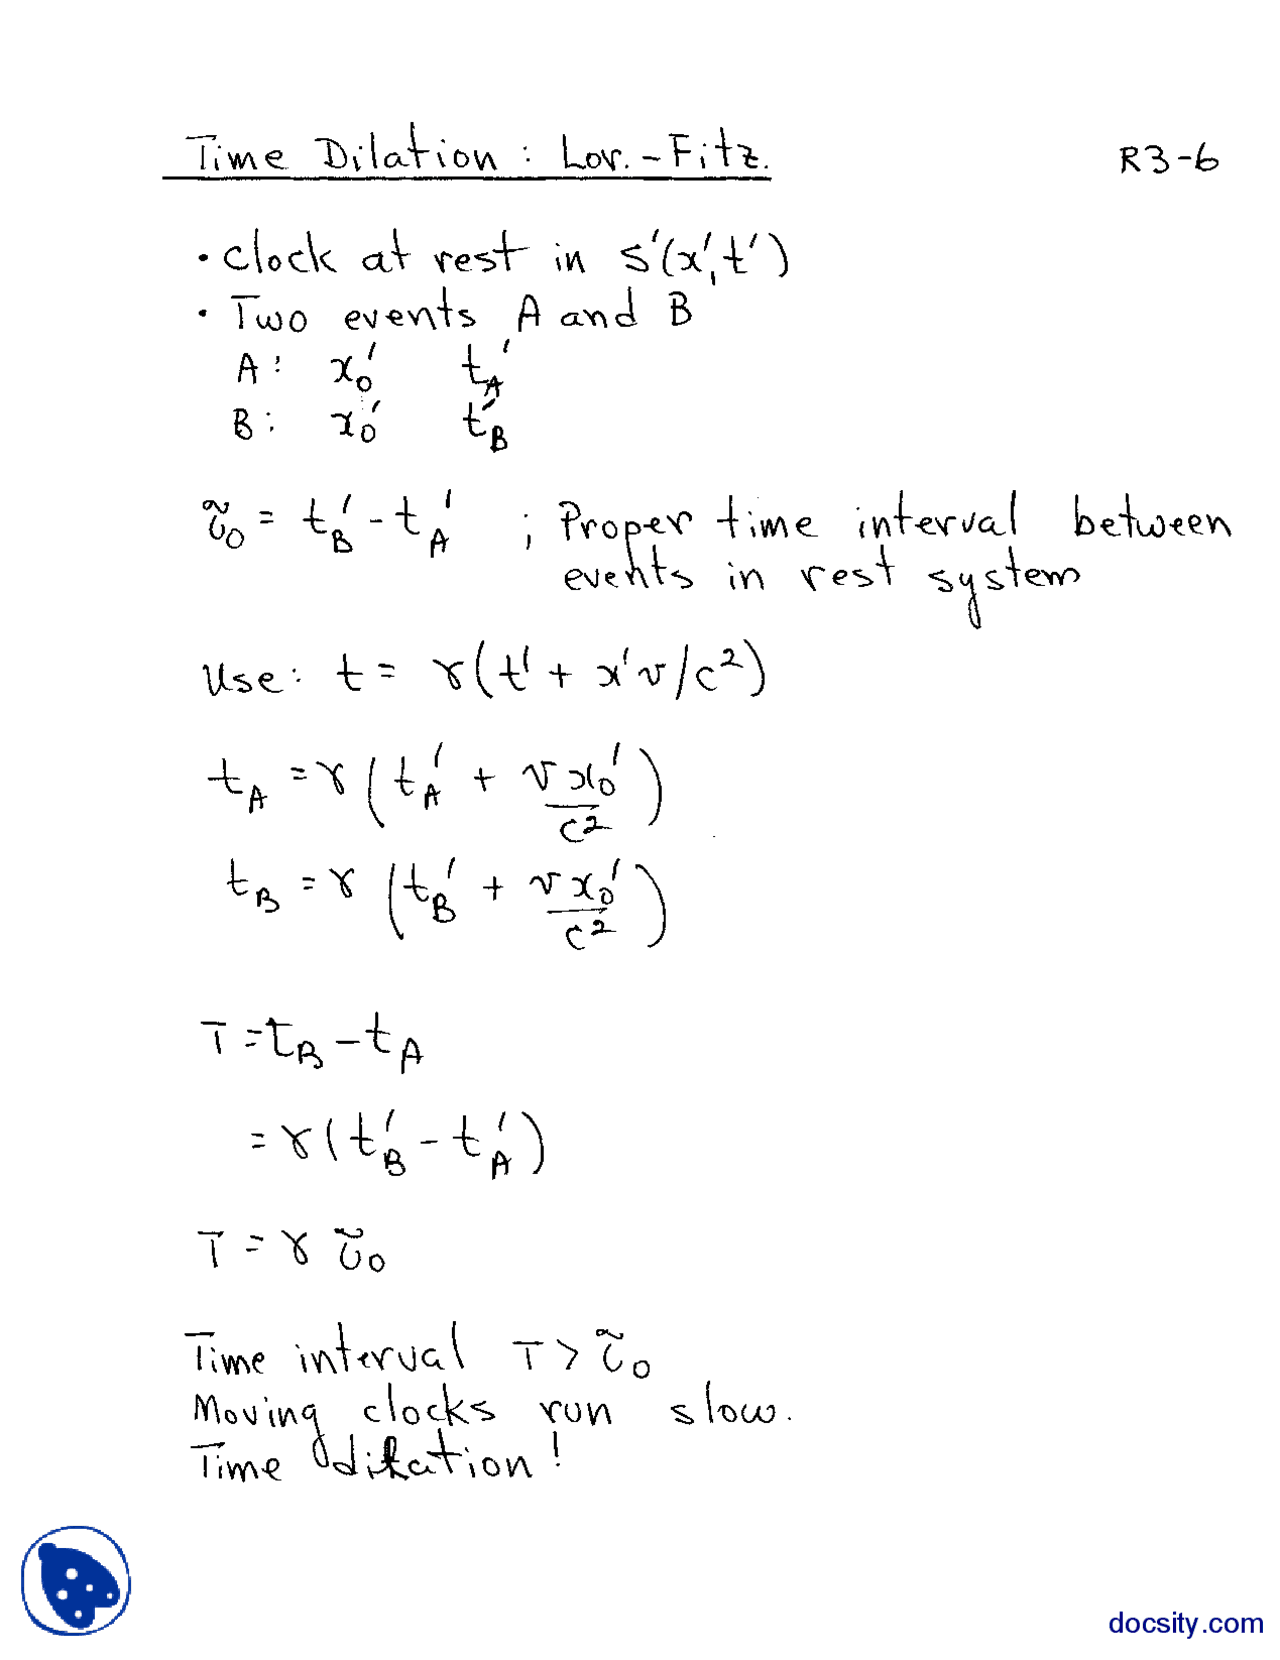 Time Dilation : Lor. - Fitz.
R3-6
• Clock at rest in S'(x', t')
• Two events A and B
A: x₀' t_A'
B: x₀' t_B'
τ₀ = t_B' - t_A' ; Proper time interval between
events in rest system
Use: t = γ(t' + x'v/c²)
t_A = γ(t_A' + vx₀'/c²)
t_B = γ(t_B' + vx₀'/c²)
T = t_B - t_A
= γ(t_B' - t_A')
T = γ τ₀
Time interval T > τ₀
Moving clocks run slow.
Time dilation!
docsity.com